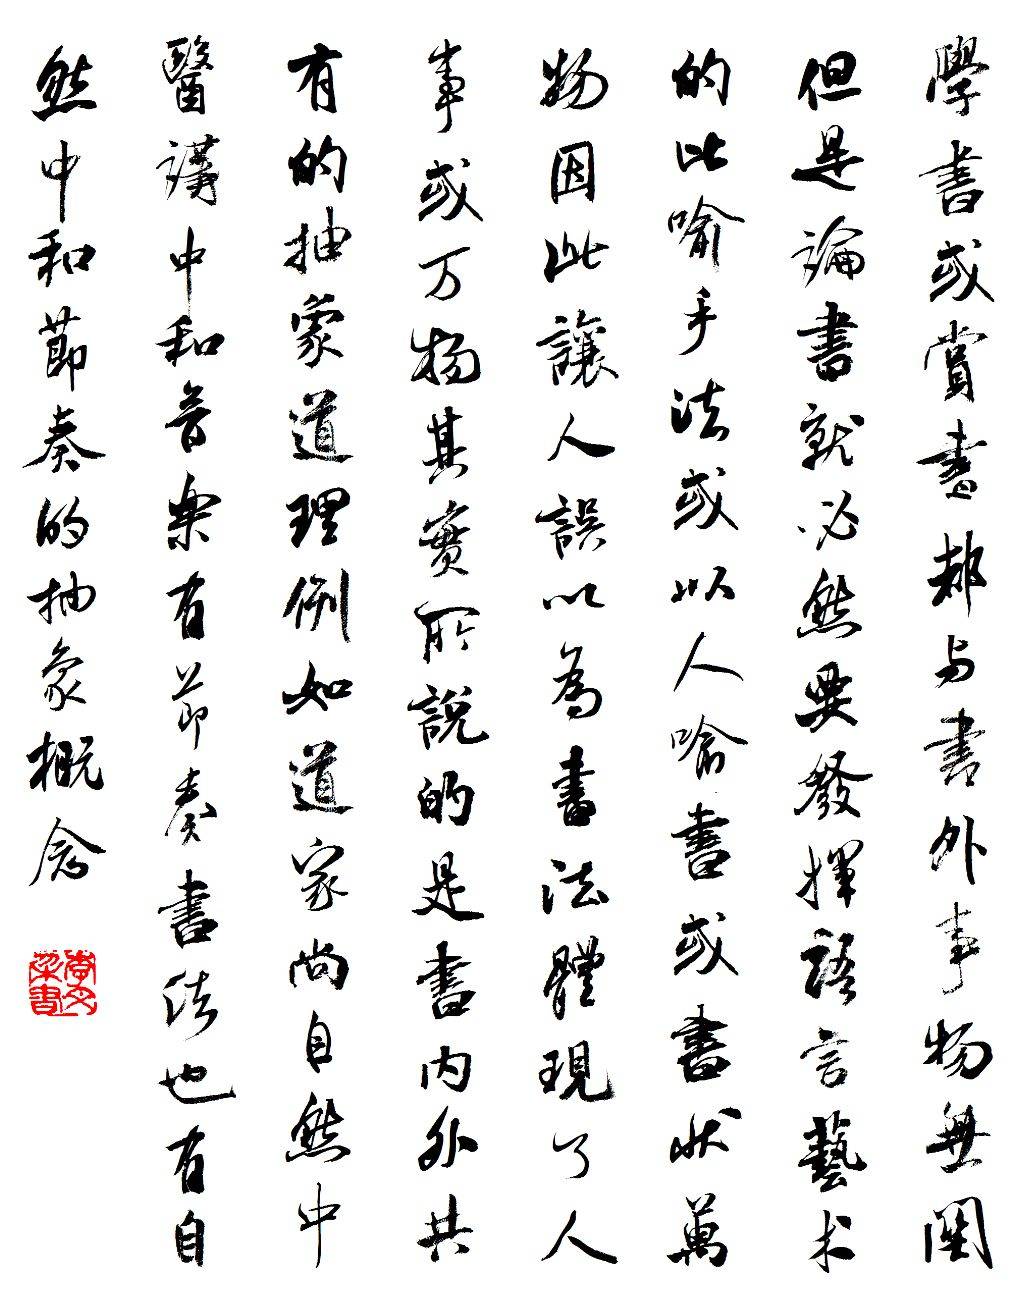 學書或賞書都与書外事物無関
但是論書就必然要發揮語言藝术
的比喻手法或以人喻書或書狀萬
物因此讓人誤以為書法體現了人
事或万物其實所說的是書内外共
有的抽象道理例如道家尚自然中
醫講中和音樂有節奏書法也有自
然中和節奏的抽象概念